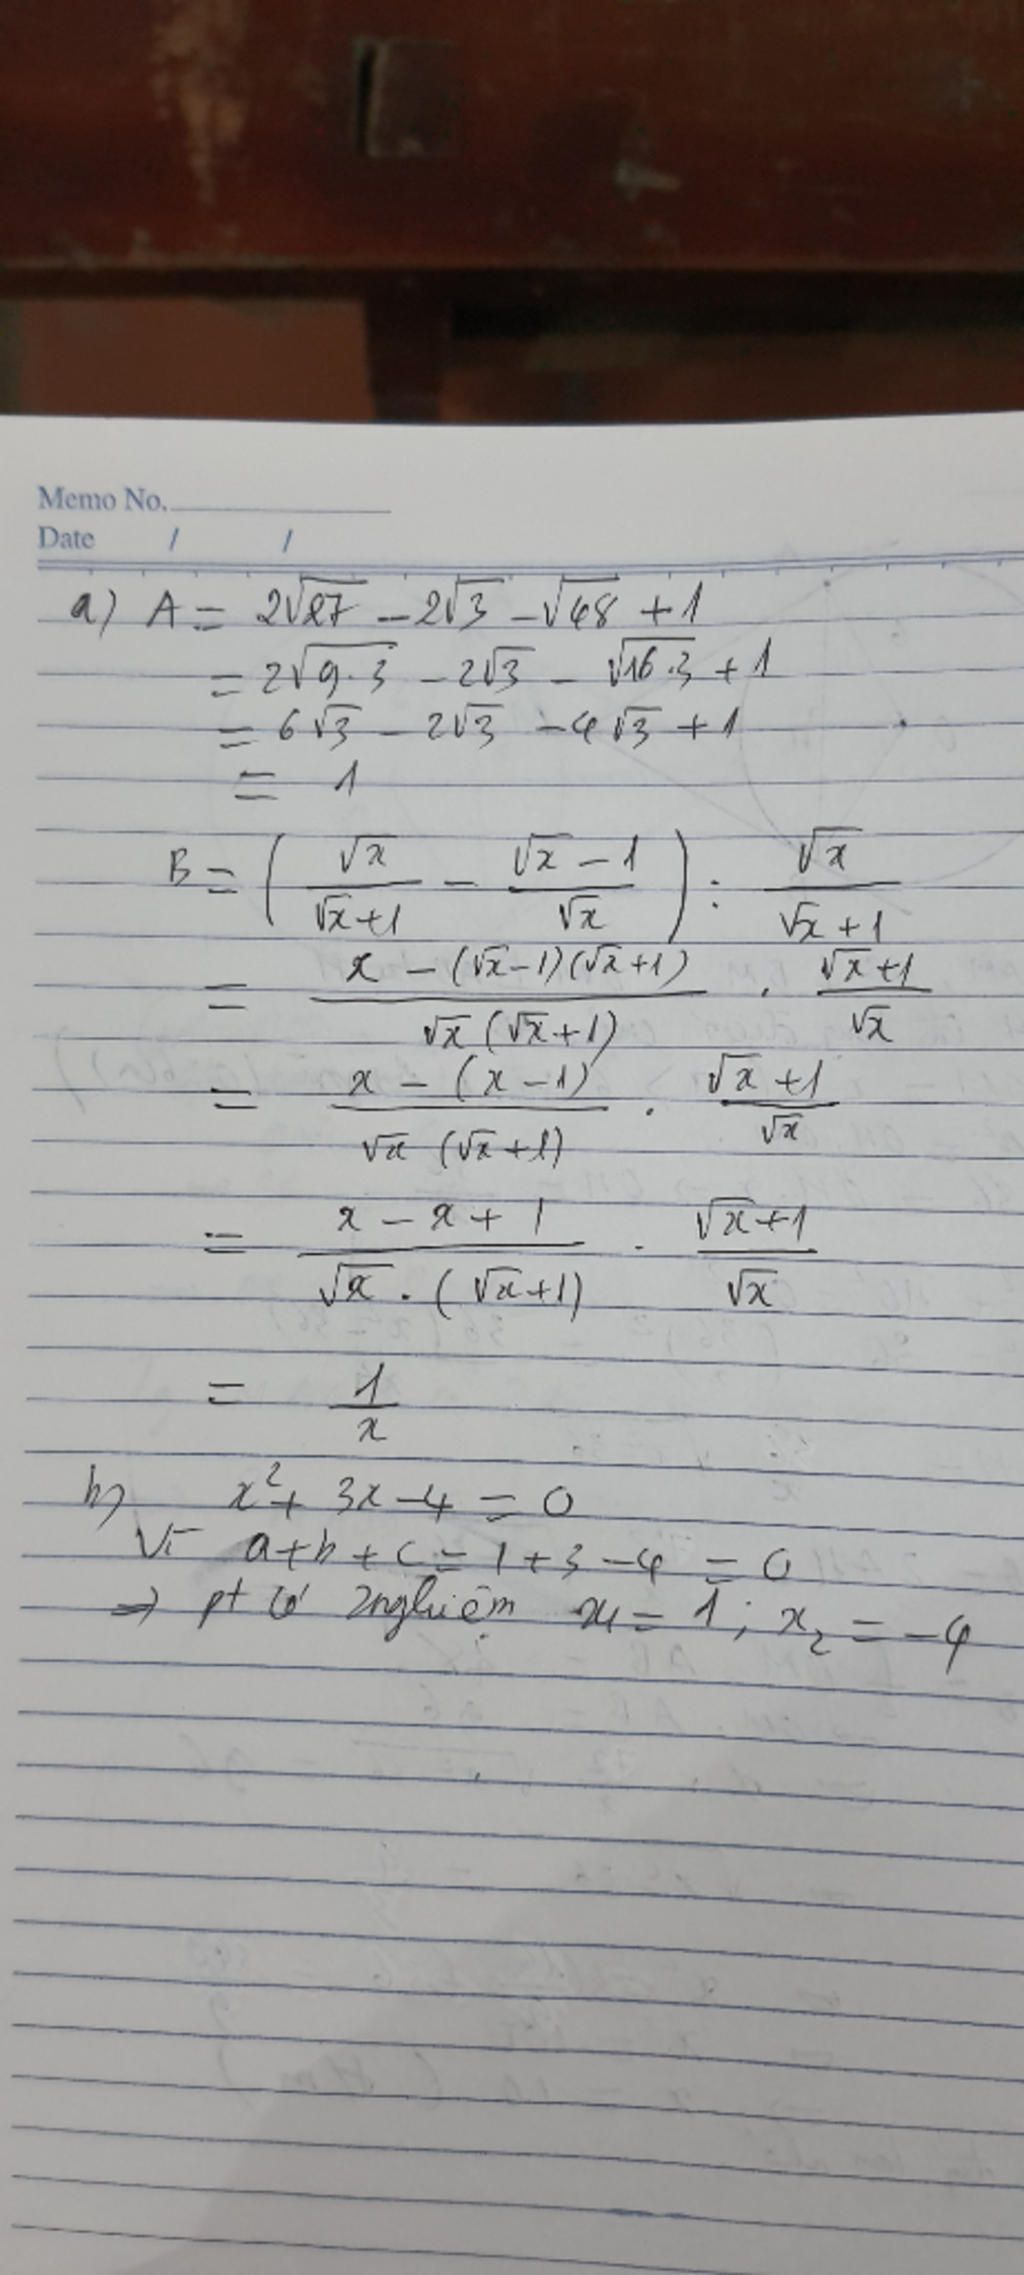 Memo No.
Date / /
a) A = 2√27 - 2√3 - √48 + 1
= 2√(9.3) - 2√3 - √(16.3) + 1
= 6√3 - 2√3 - 4√3 + 1
= 1
B = (√x/(√x+1) - (√x-1)/√x) : √x/(√x+1)
= (x - (√x-1)(√x+1))/(√x(√x+1)) . (√x+1)/√x
= (x - (x-1))/(√x(√x+1)) . (√x+1)/√x
= (x - x + 1)/(√x . (√x+1)) . (√x+1)/√x
= 1/x
b) x² + 3x - 4 = 0
Vì a + b + c = 1 + 3 - 4 = 0
=> pt có 2 nghiệm x₁ = 1 ; x₂ = -4